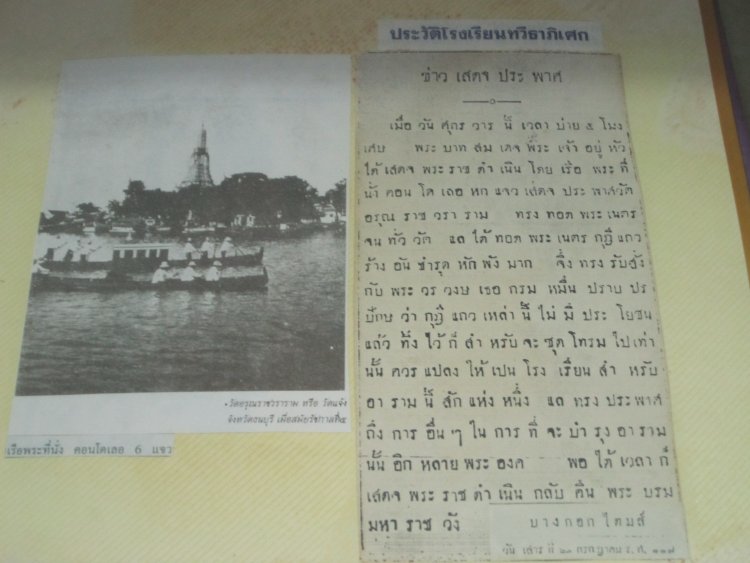 ประวัติโรงเรียนทวีธาภิเศก
ข่าว เสดจ ประ พาศ
เมื่อ วัน ศุกร วาร นี้ เวลา บ่าย ๕ โมง
เศษ พระ บาท สม เดจ พระ เจ้า อยู่ หัว
ได้ เสดจ พระ ราช ดำ เนิน โดย เรือ พระ ที่
นั่ง คอน โด เลอ หก แจว เสดจ ประ พาศวัด
อรุณ ราช วรา ราม ทรง ทอด พระ เนตร
จน ทั่ว วัด แล ได้ ทอด พระ เนตร กุฎี แถว
ร้าง อัน ชำรุด หัก พัง มาก จึ่ง ทรง รับสั่ง
กับ พระ วร วงษ เธอ กรม หมื่น ปราบ ปร
ปักษ ว่า กุฎี แถว เหล่า นี้ ไม่ มี ประ โยชน
แล้ว ทิ้ง ไว้ ก็ สำ หรับ จะ ชุด โทรม ไป เท่า
นั้น ควร แปลง ให้ เปน โรง เรียน สำ หรับ
อา ราม นี้ สัก แห่ง หนึ่ง แล ทรง ประพาศ
ถึง การ อื่น ๆ ใน การ ที่ จะ บำ รุง อา ราม
นั้น อิก หลาย พระ องค พอ ได้ เวลา ก็
เสดจ พระ ราช ดำ เนิน กลับ คืน พระ บรม
มหา ราช วัง
บางกอก ไตมส์
วัน เสาร์ ที่ ๒๐ กรกฎาคม ร. ศ. ๑๑๗
วัดอรุณราชวราราม หรือ วัดแจ้ง
จังหวัดธนบุรี เมื่อสมัยรัชกาลที่๕
เรือพระที่นั่ง คอนโดเลอ 6 แจว